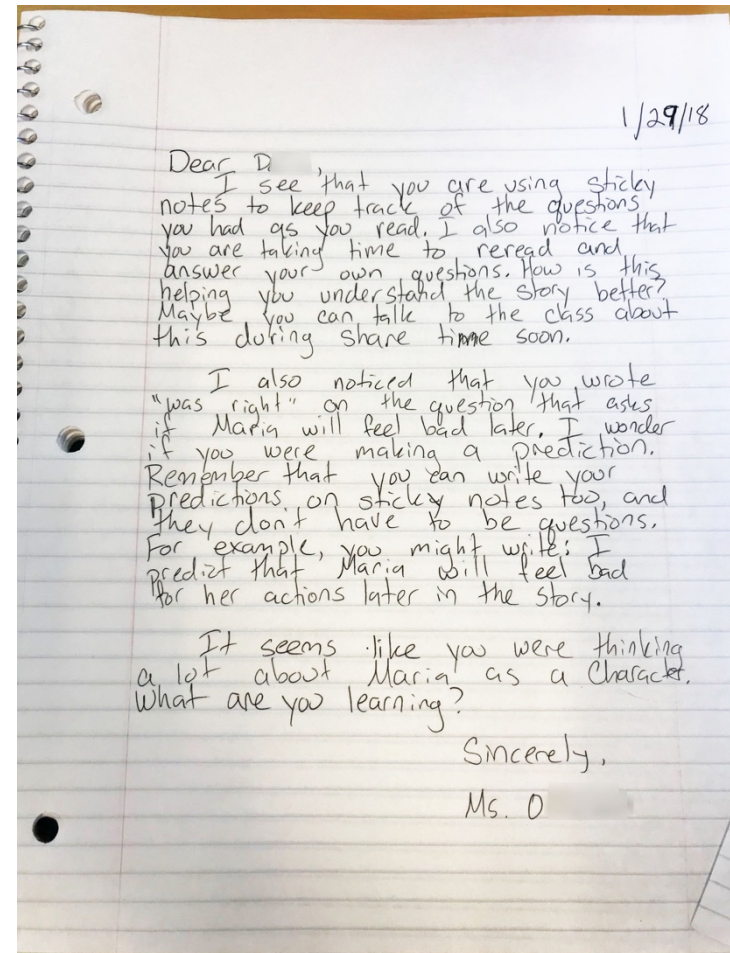 1/29/18
Dear D ,
I see that you are using sticky
notes to keep track of the questions
you had as you read. I also notice that
you are taking time to reread and
answer your own questions. How is this
helping you understand the story better?
Maybe you can talk to the class about
this during share time soon.
I also noticed that you wrote
"was right" on the question that asks
if Maria will feel bad later. I wonder
if you were making a prediction.
Remember that you can write your
predictions on sticky notes too, and
they don't have to be questions.
For example, you might write: I
predict that Maria will feel bad
for her actions later in the story.
It seems like you were thinking
a lot about Maria as a Character.
What are you learning?
Sincerely,
Ms. O